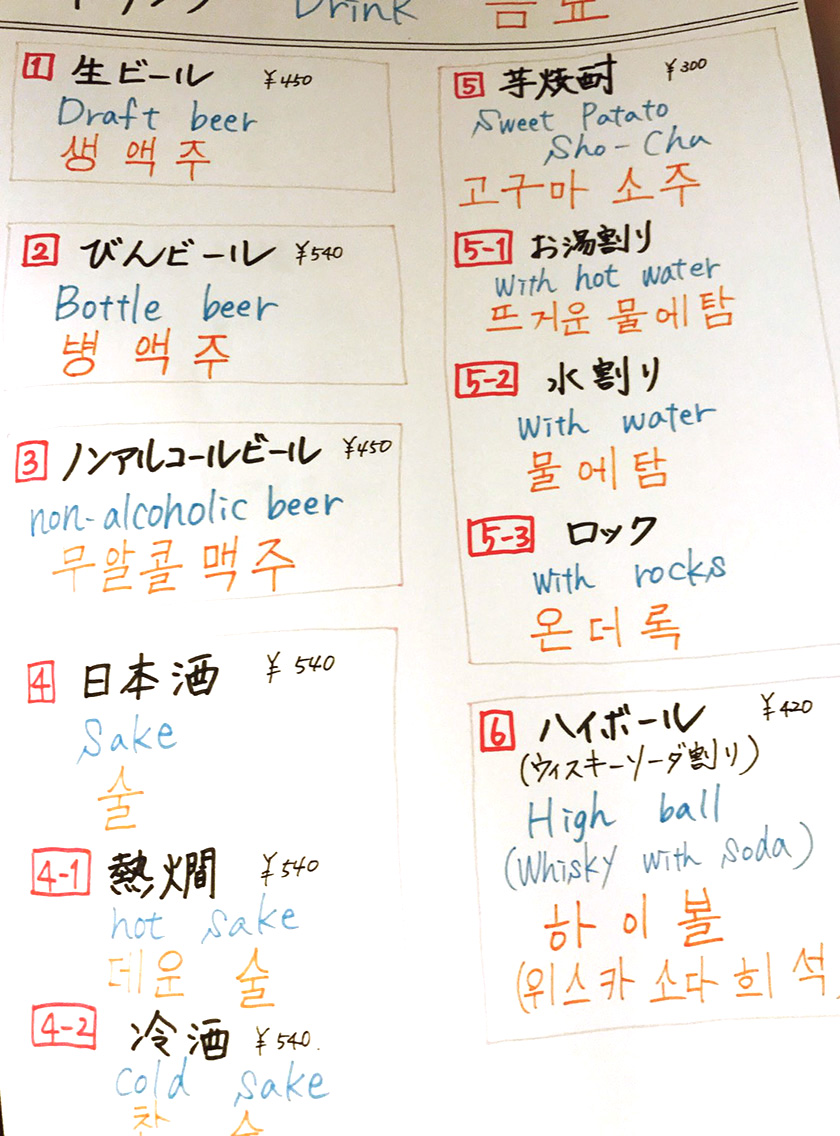 ドリンク Drink 음료
1 生ビール ¥450
Draft beer
생 액 주
2 びんビール ¥540
Bottle beer
병 액 주
3 ノンアルコールビール ¥450
non-alcoholic beer
무알콜 맥주
4 日本酒 ¥540
Sake
술
4-1 熱燗 ¥540
hot sake
데운 술
4-2 冷酒 ¥540.
cold sake
찬 술
5 芋焼酎 ¥300
Sweet Patato
Sho-Chu
고구마 소주
5-1 お湯割り
with hot water
뜨거운 물에탐
5-2 水割り
with water
물에탐
5-3 ロック
with rocks
온더록
6 ハイボール ¥420
(ウィスキーソーダ割り)
High ball
(Whisky with soda)
하이볼
(위스카 소다 희석